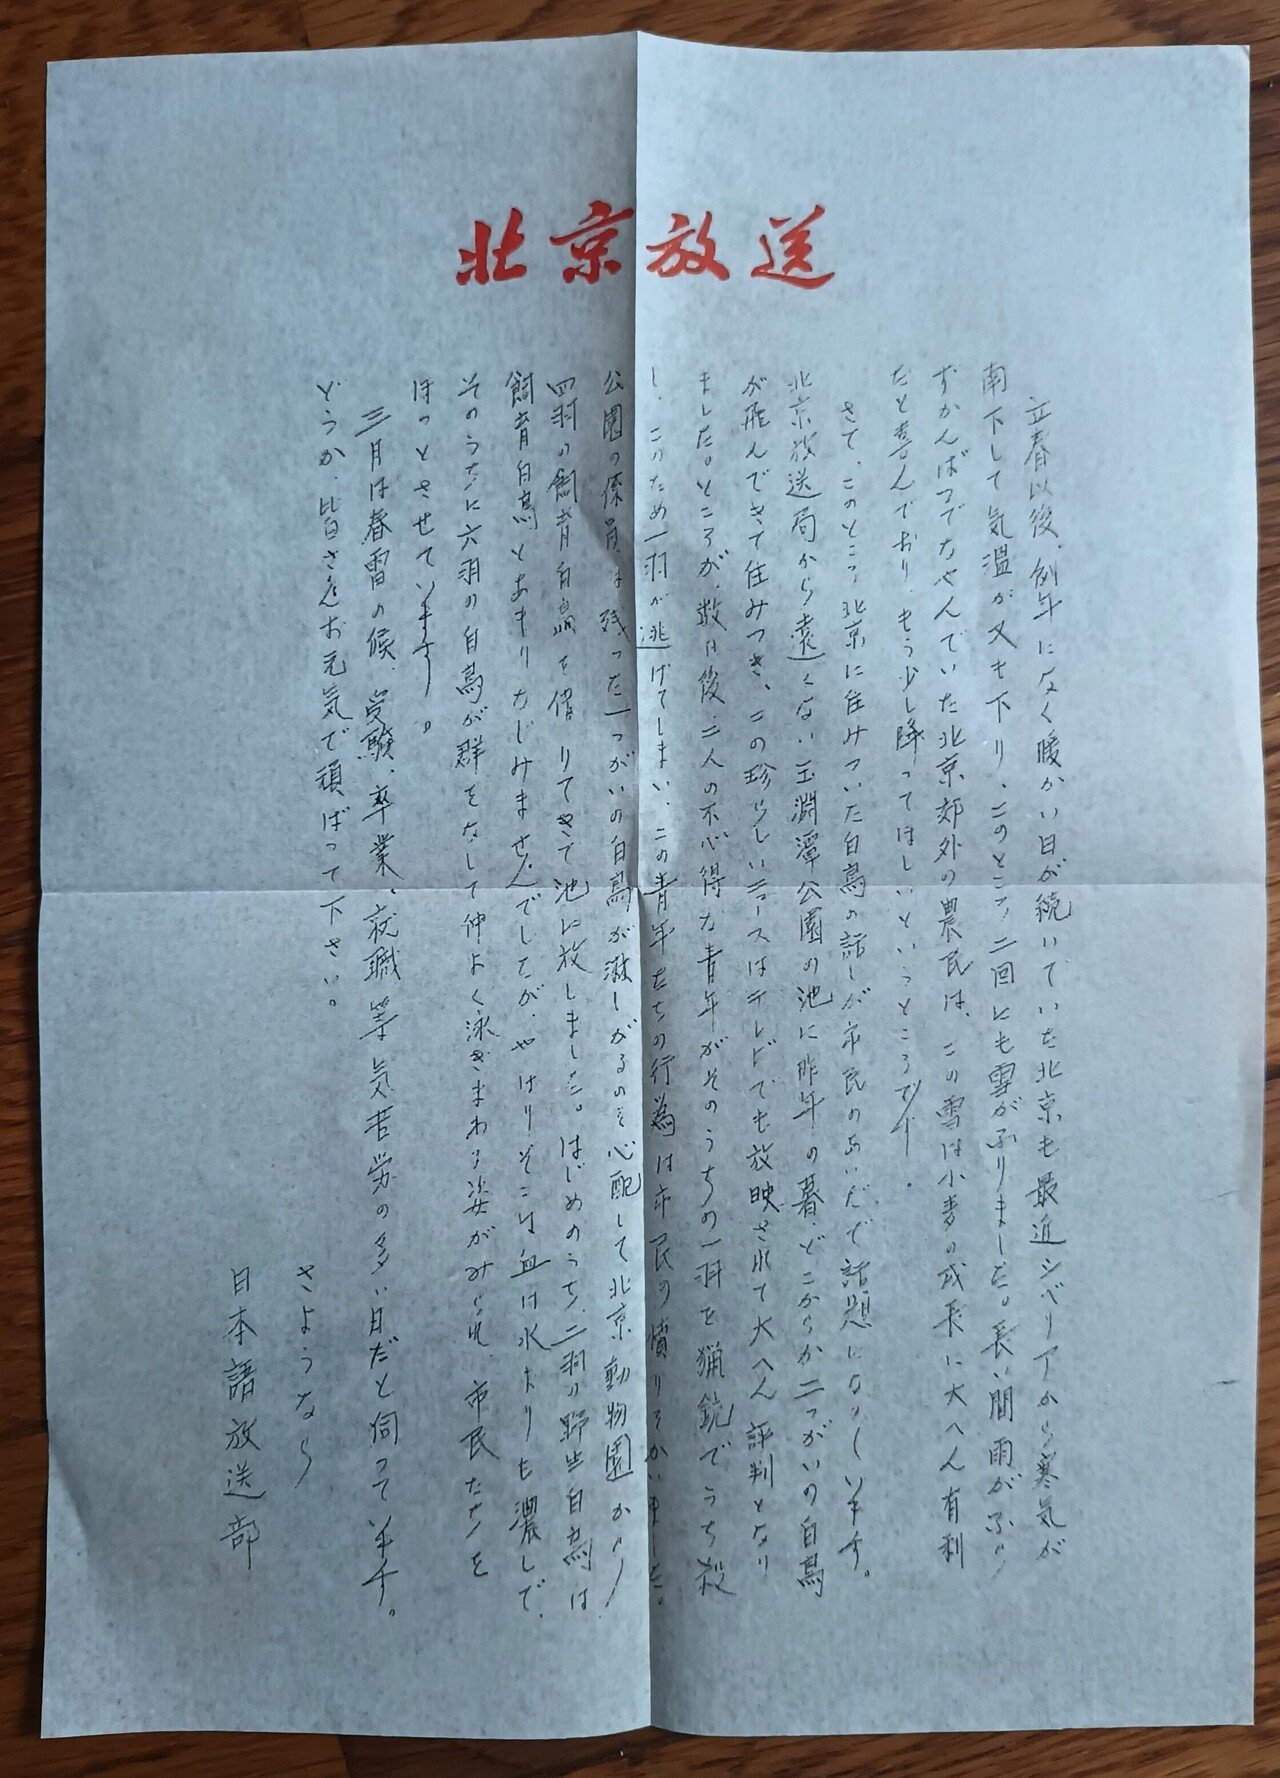 北京放送
立春以後、例年になく暖かい日が続いていた北京も最近シベリアから寒気が
南下して気温が又も下り、このところ二回にも雪がふりました。長い間雨がふら
ずかんばつでなやんでいた北京郊外の農民は、この雪は小麦の成長に大へん有利
だと喜んでおり、もう少し降ってほしいというところです。
さて、このところ北京に住みついた白鳥の話しが市民のあいだで話題になっています。
北京放送局から遠くない玉淵潭公園の池に昨年の暮、どこからか二つがいの白鳥
が飛んできて住みつき、この珍らしいニュースはテレビでも放映されて大へん評判となり
ました。ところが、数日後、二人の不心得な青年がそのうちの一羽を猟銃でうち殺
し、このため一羽が逃げてしまい、この青年たちの行為は市民の憤りをかいました。
公園の係員は残った一つがいの白鳥が淋しがるのを心配して北京動物園から
四羽の飼育白鳥を借りてきて池に放しました。はじめのうち、二羽の野生白鳥は、
飼育白鳥とあまりなじみませんでしたが、やはりそこは血は水よりも濃しで、
そのうちに六羽の白鳥が群をなして仲よく泳ぎまわる姿がみられ、市民たちを
ほっとさせています。
三月は春雪の候、受験、卒業、就職等気苦労の多い日だと伺っています。
どうか、皆さんお元気で頑ばって下さい。
さようなら
日本語放送部